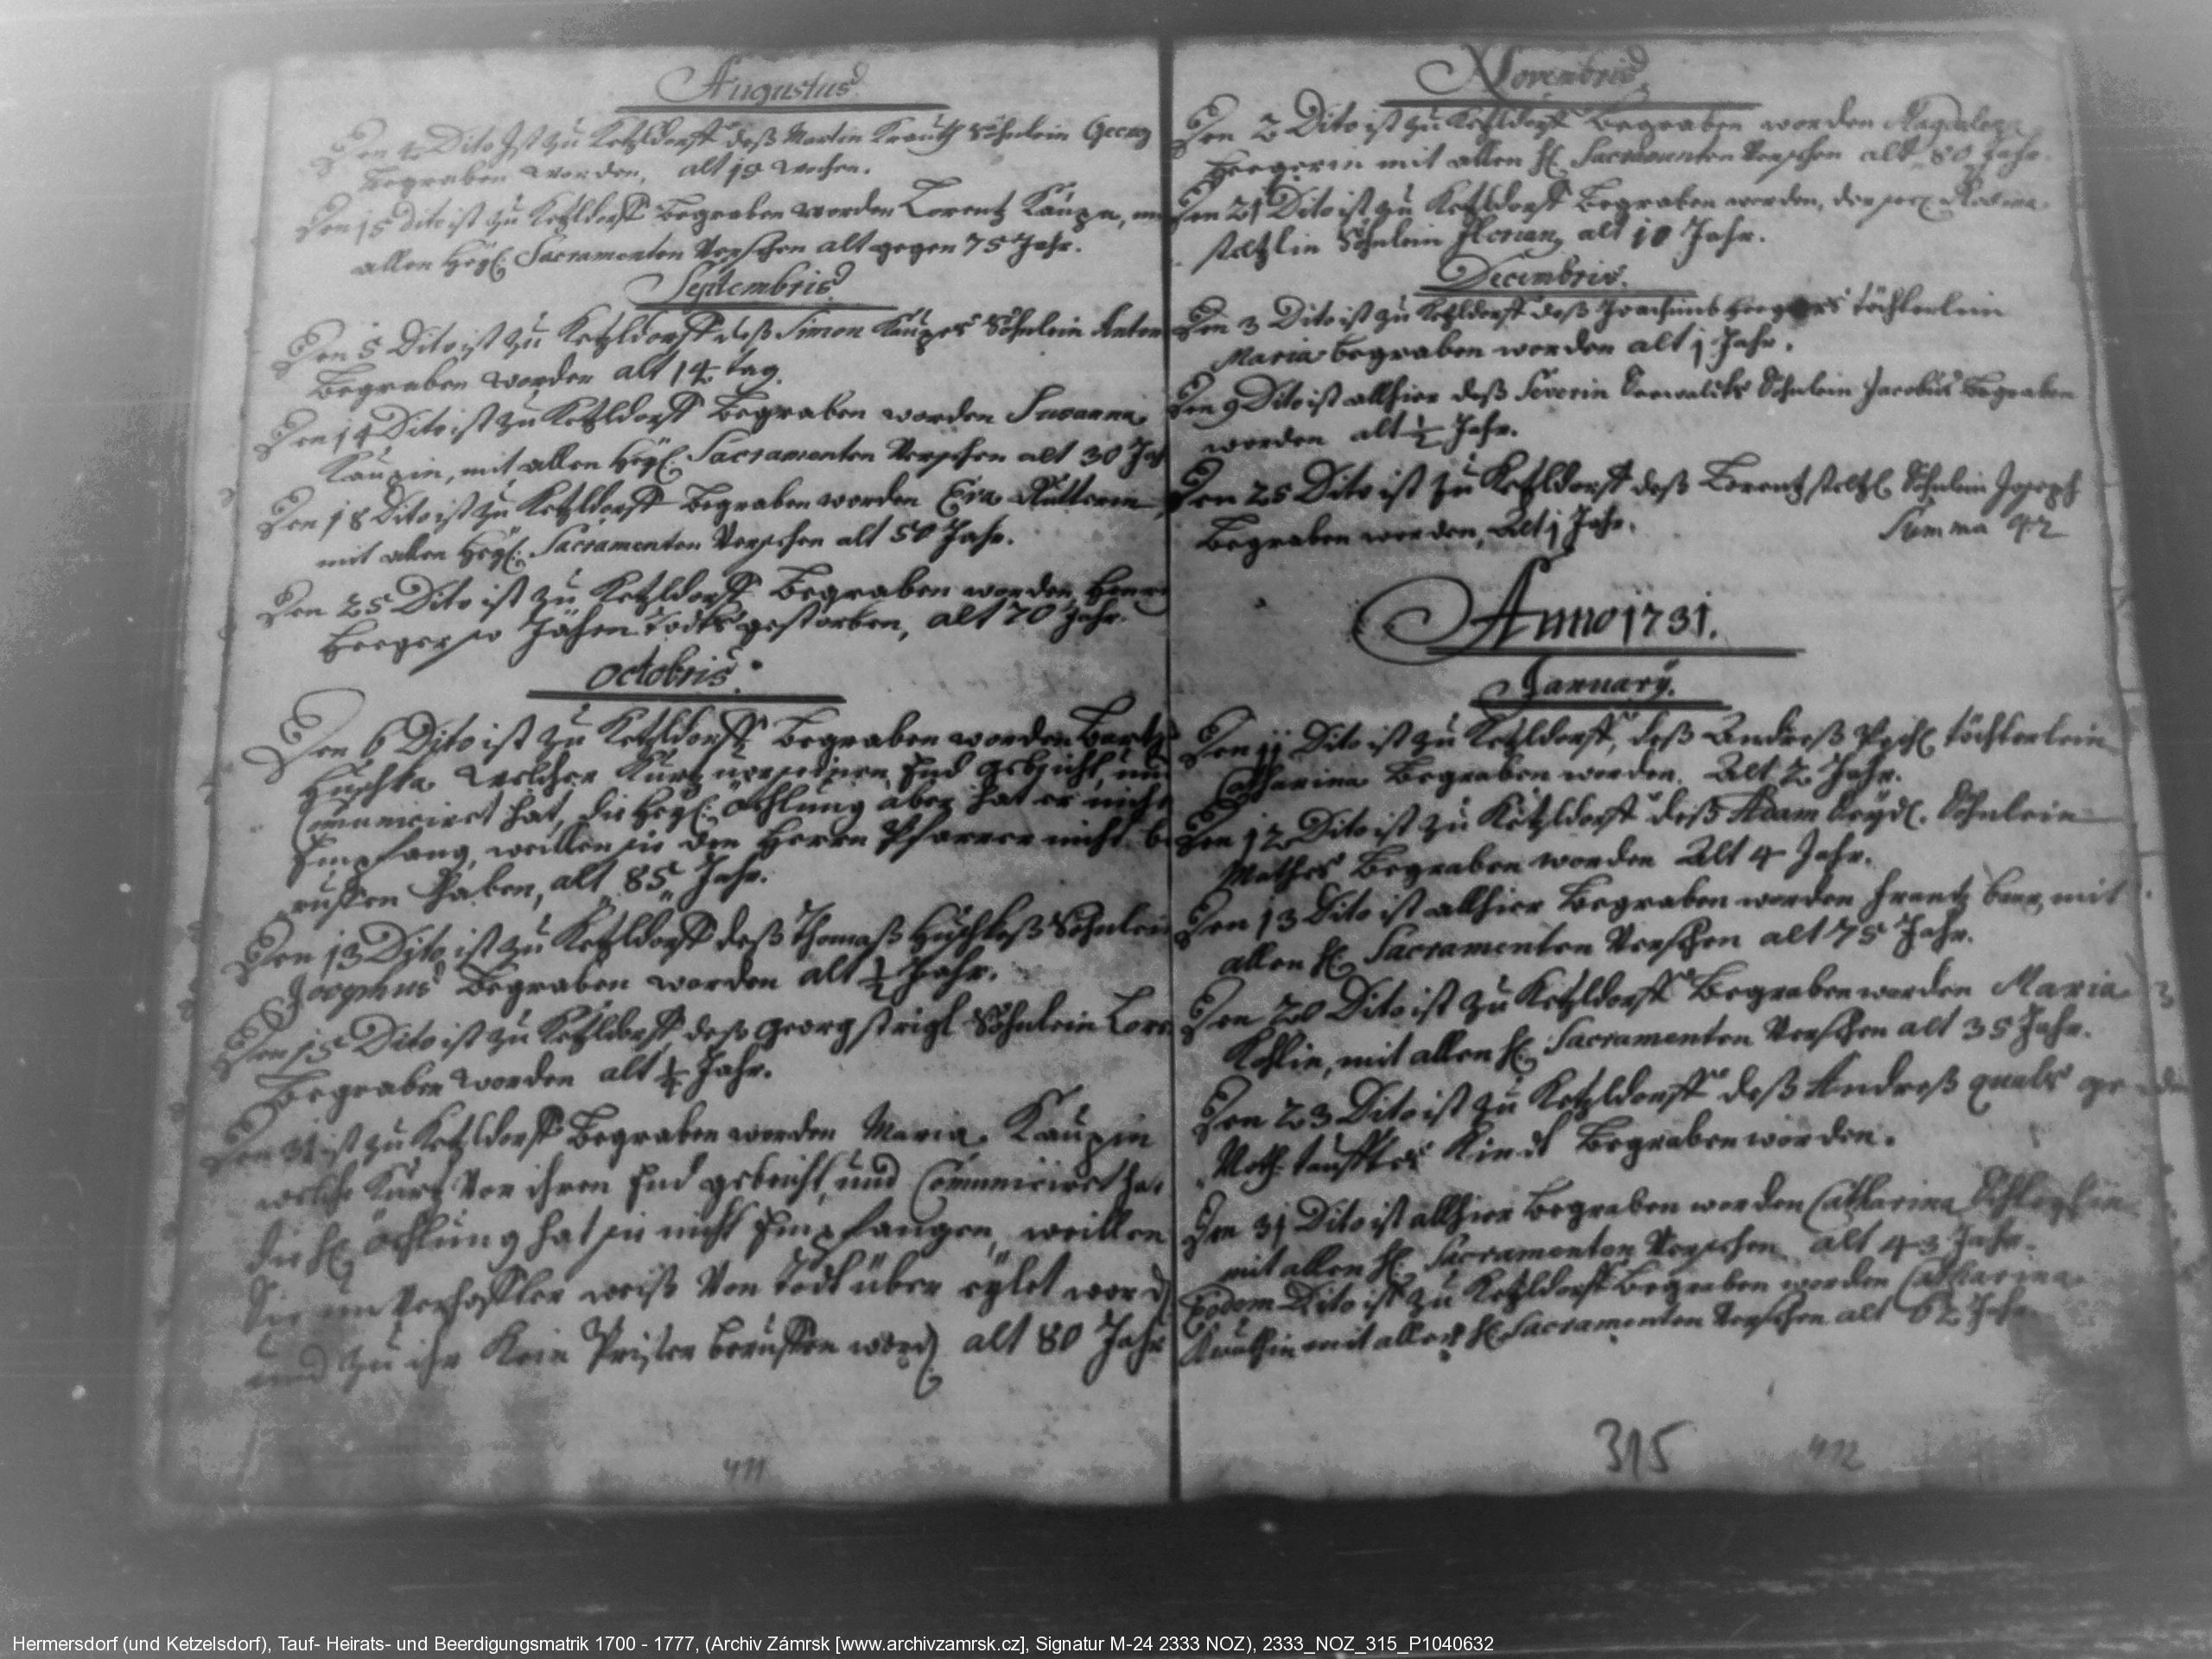 Augustus
Den 4 Dito Ist zu Ketzldorff deß Martin Krauth Söhnlein Georg
begraben worden, alt 18 wochen.
Den 15 Dito ist zu Ketzldorff begraben worden Lorentz Kauper,
allen Heyl: Sacramenten Versehen alt gegen 75 Jahr.
Septembris
Den 5 Dito ist zu Ketzldorff deß Simon Kaupes Söhnlein Anton
Begraben worden alt 14 tag.
Den 14 Dito ist zu Ketzldorff Begraben worden Susanna
Kaupin, mit allen Heyl: Sacramenten Versehen alt 30 Jah
Den 18 Dito ist zu Ketzldorff Begraben worden Eva
mit allen Heyl: Sacramenten Versehen alt 50 Jahr.
Den 25 Dito ist zu Ketzldorff Begraben worden
Heeger so Jähen Todts gestorben, alt 70 Jahr.
Octobris
Den 6 Dito ist zu Ketzldorff Begraben worden Bartl
Huschka welcher Kurtz vor seinen End gebeicht, und
Communiciret hat, die Heyl: Öehlung aber hat er nicht
Empfang, weillen sie den Herrn Pfarrer nicht be
ruffen haben, alt 85 Jahr.
Den 13 Dito ist zu Ketzldorff deß Thomaß Huschkeß Söhnlein
Josephus Begraben worden alt Jahr.
Den 15 Dito ist zu Ketzldorff deß Georg strigl Söhnlein Lore
Begraben worden alt Jahr.
Den 31 ist zu Ketzldorff Begraben worden Maria Kaupin
welche Kurtz Vor ihren End gebeicht, und Communiciret ha
die Hl Öehlung hat sie nicht Empfangen, weillen
Sie unverhoffter weiß Von Todt über eylet word
und zu ihr Kein Prister beruffen word alt 80 Jahr
411
Novembris
Den 2 Dito ist zu Ketzldorff Begraben worden Magdalena
Heegerin mit allen Hl Sacramenten Versehen alt 80 Jahr.
Den 21 Dito ist zu Ketzldorff Begraben worden, der
steltzlin Söhnlein Florian, alt 10 Jahr.
Decembris.
Den 3 Dito ist zu Ketzldorff deß Joachimb Heegers töchterlein
Maria begraben worden alt 1 Jahr.
Den 9 Dito ist allhier deß Severin Söhnlein Jacobus Begraben
worden alt ½ Jahr.
Den 25 Dito ist zu Ketzldorff deß Lorentz steltzl Söhnlein Joseph
Begraben worden, Alt 1 Jahr.
Summa 42
Anno 1731.
January.
Den 11 Dito ist zu Ketzldorff, deß Andreß töchterlein
Catharina Begraben worden. Alt 2 Jahr.
Den 12 Dito ist zu Ketzldorff deß Adam Seydl. Söhnlein
Mathes Begraben worden Alt 4 Jahr.
Den 13 Dito ist allhier Begraben worden Frantz mit
allen Hl Sacramenten Versehen alt 75 Jahr.
Den 20 Dito ist zu Ketzldorff Begraben worden Maria
Kohlin, mit allen Hl: Sacramenten Versehen alt 35 Jahr.
Den 23 Dito ist zu Ketzldorff deß Andreß
Noth tauffter Kindt Begraben worden.
Den 31 Dito ist allhier Begraben worden Catharina
mit allen Hl Sacramenten Versehen alt 43 Jahr.
Eodem Dito ist zu Ketzldorff Begraben worden Catharina
mit allen Hl Sacramenten Versehen alt 62 Jahr
315
412
Hermersdorf (und Ketzelsdorf), Tauf- Heirats- und Beerdigungsmatrik 1700 - 1777, (Archiv Zámrsk [www.archivzamrsk.cz], Signatur M-24 2333 NOZ), 2333_NOZ_315_P1040632